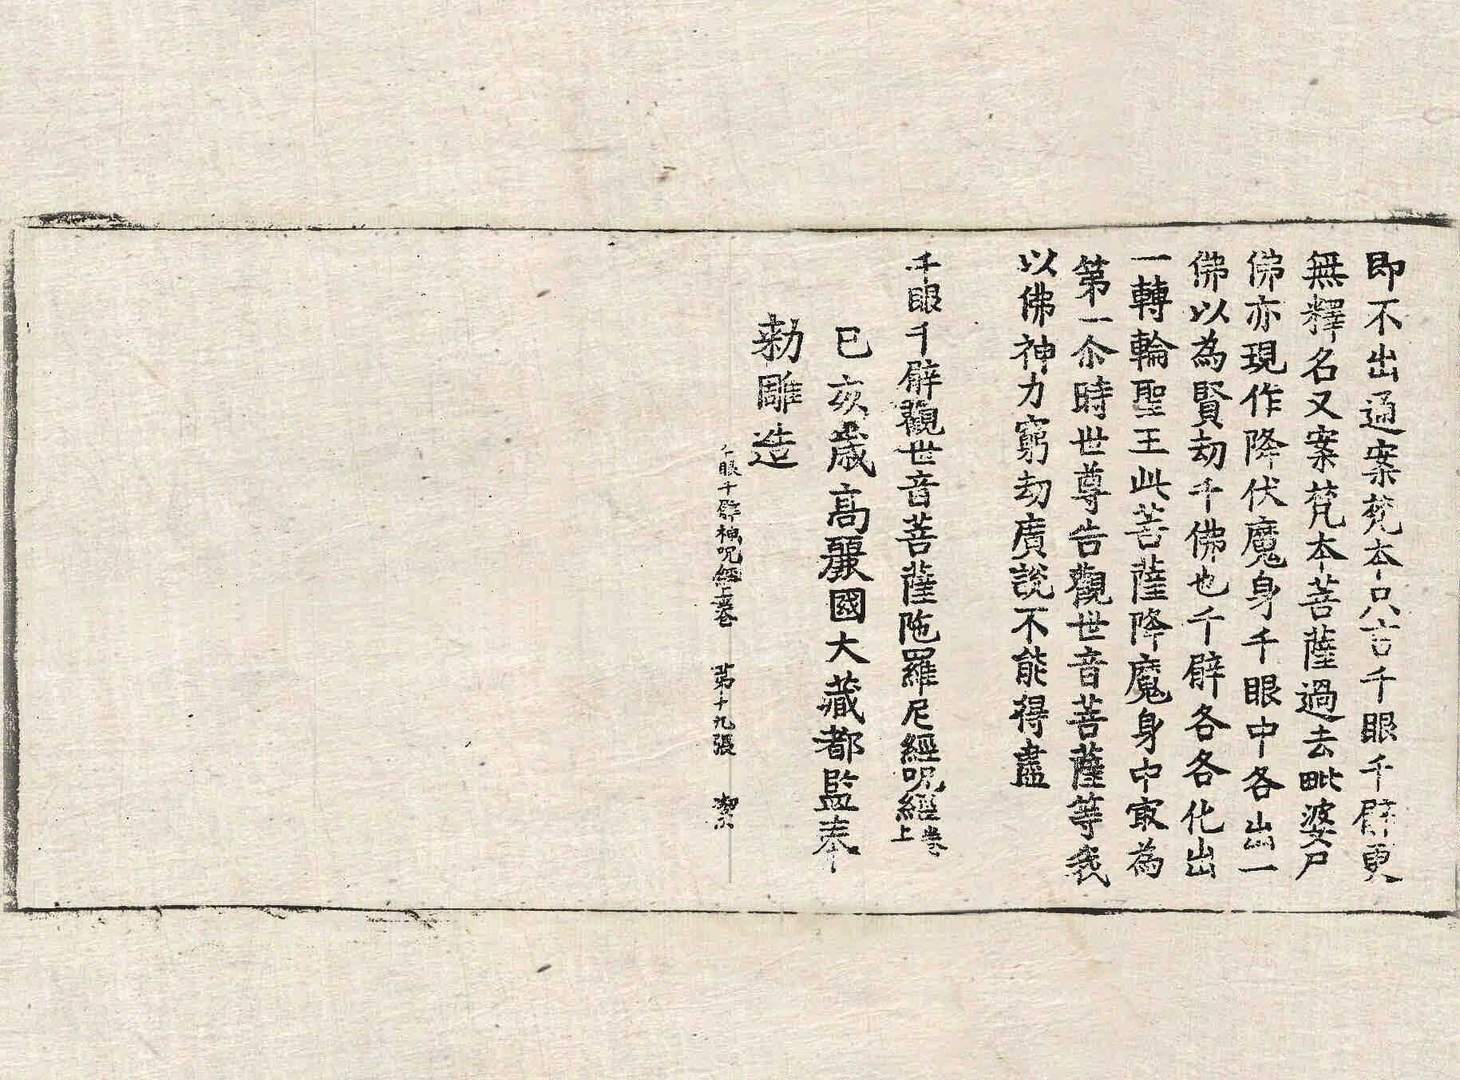 即不出通案梵本只言千眼千臂更
無釋名又案梵本菩薩過去毗婆尸
佛亦現作降伏魔身千眼中各出一
佛以為賢劫千佛也千臂各各化出
一轉輪聖王此菩薩降魔身中㝡為
第一尒時世尊告觀世音菩薩等我
以佛神力窮劫廣說不能得盡
千眼千臂觀世音菩薩陁羅尼經呪經卷上
己亥歲高麗國大藏都監奉
勑雕造
千眼千臂神呪經上卷 第十九張